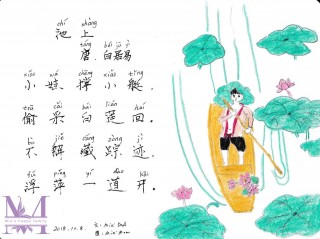 chí shàng
池上
táng bái jū yì
唐.白居易
xiǎo wá chēng xiǎo tǐng
小娃撑小艇，
tōu cǎi bái lián huí
偷采白莲回。
bù jiě cáng zōng jì
不解藏踪迹，
fú píng yí dào kāi
浮萍一道开。
2018.10.8.